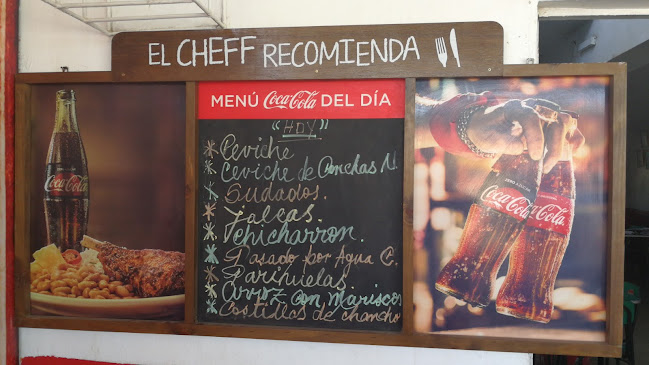 EL CHEFF RECOMIENDA
MENÚ Coca-Cola DEL DÍA
"HOY"
* Ceviche
* Ceviche de Conchas N.
* Sudados.
* Jaleas.
* chicharron.
* Pasado por Agua C.
* Parihuelas
* Arroz con Mariscos
* Costillas de chancho
Coca-Cola
Coca-Cola
Coca-Cola